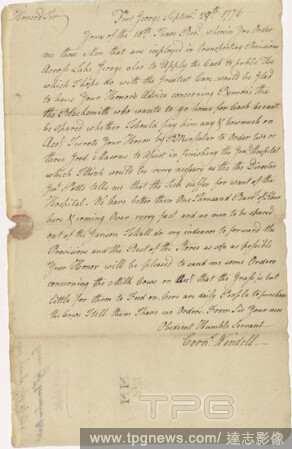 Honored Sir
Fort George Septmr. 29th. 1776
Yours of the 18th. I have Recd. wherein you Order
me three More that are imployed in transporting Provisions
Across Lake George also to Apply the Cash to publick Use
which I hope do with the Greatest Care, would be glad
to have Your Honor's Advice concerning Remond the
the Blacksmith who wants to go home for Cash he cant
be Spared whether I should pay him any & how much on
Acct. I wrote Your Honor by to order two or
three good Masons to Assist in finishing the Genl. Hospital
which I think would be very necessary as the the Director
Potts tells me that the Sick suffer for want of the
Hospital. We have better than One Thousand Barrls. of Flour
here & coming Over very fast and no men to be spared
out of the Garison I shall do my endeavor to forward the
Provisions and the Rest of the Stores as as possible
Your Honor will be pleased to send me some Orders
concerning the Milk Cows on that the Grass is but
little for them to Feed on, here are daily People to purchase
the Cows I tell them I have no Orders. From Sir Your most
Obedient Humble Servant
Corns. Wendell
TPG
www.tpgnews.com / 達志影像